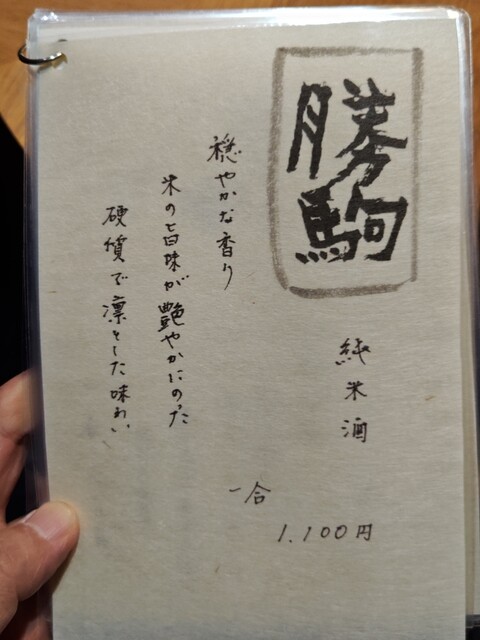 勝駒
純米酒
穏やかな香り
米の旨味が艶やかにのった
硬質で凛とした味わい
一合
1.100円